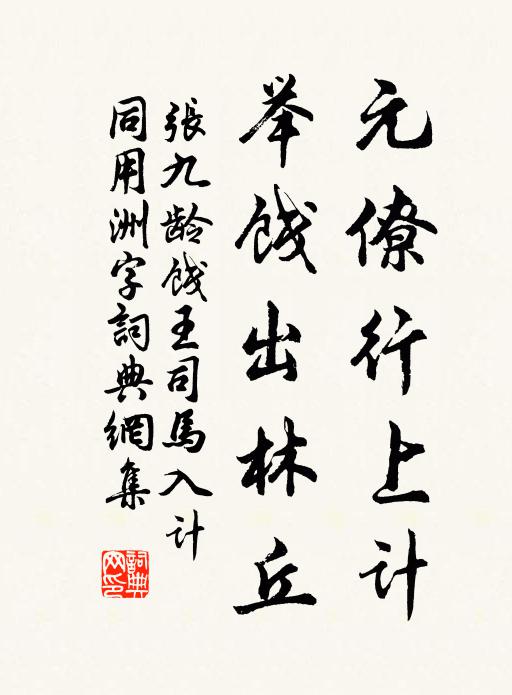 元僚行上计
举饯出林丘
張九龄饯王司馬入计
同用洲字詞典網集
詞典网印